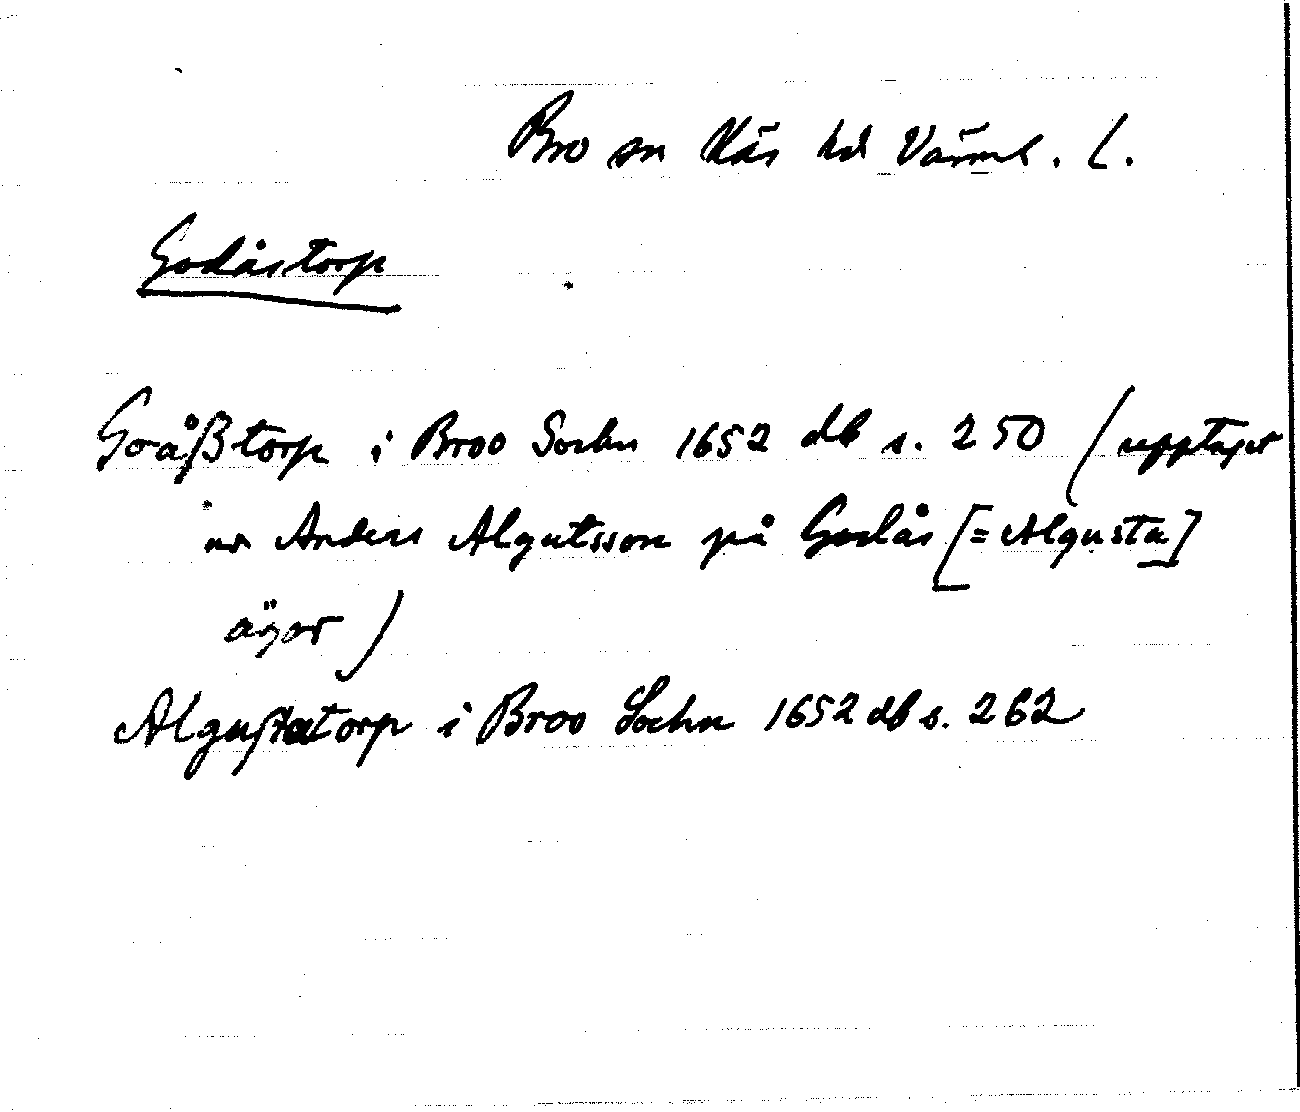 Bro sn Näs hd Värml. l.
Godåstorp
Goåßtorp i Broo Sochn 1652 db s. 250 (upptaget
ur Anders Algutsson på Godås [= Algusta]
ägor)
Algustatorp i Broo Sochn 1652 db s. 262